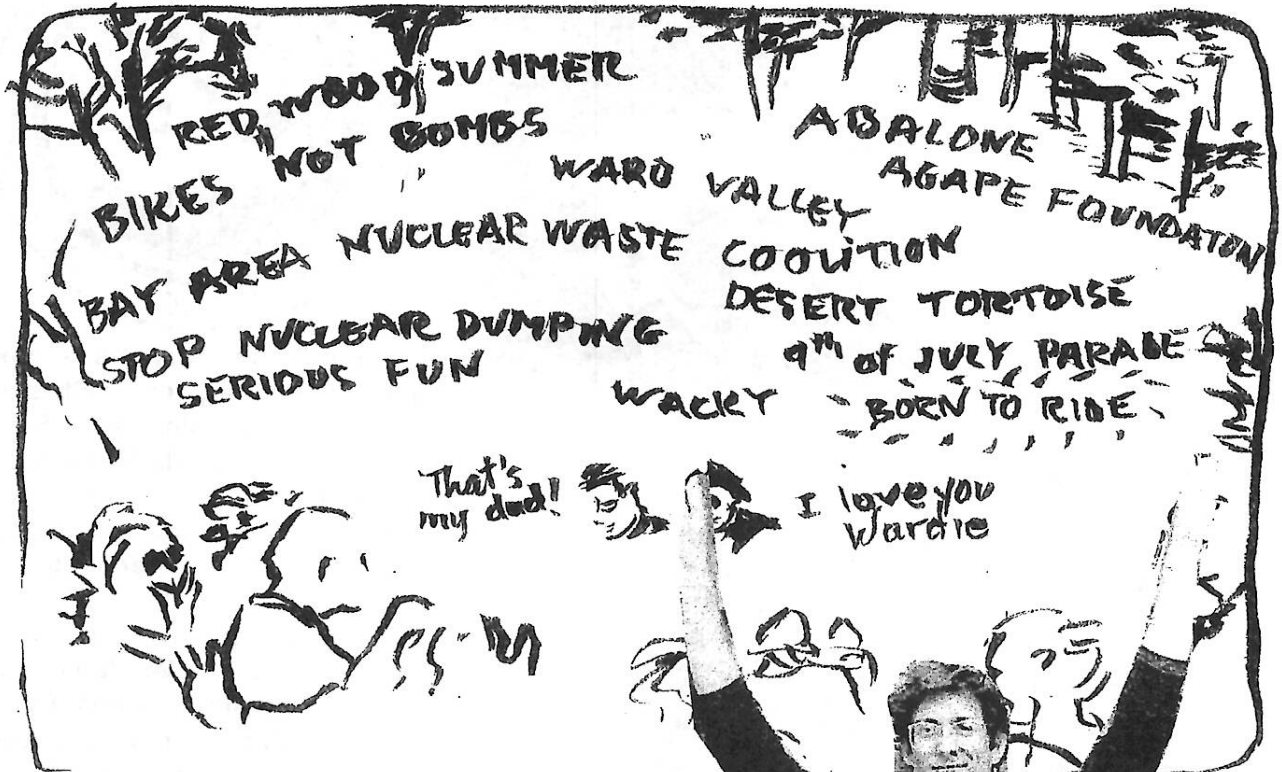 RED WOOD SUMMER
BIKES NOT BOMBS
ABALONE
AGAPE FOUNDATON
WARD VALLEY
BAY AREA NUCLEAR WASTE COOLITION
DESERT TORTOISE
STOP NUCLEAR DUMPING
9th OF JULY PARADE
SERIOUS FUN
WACKY
BORN TO RIDE
That's
my dad!
I love you
Wardie